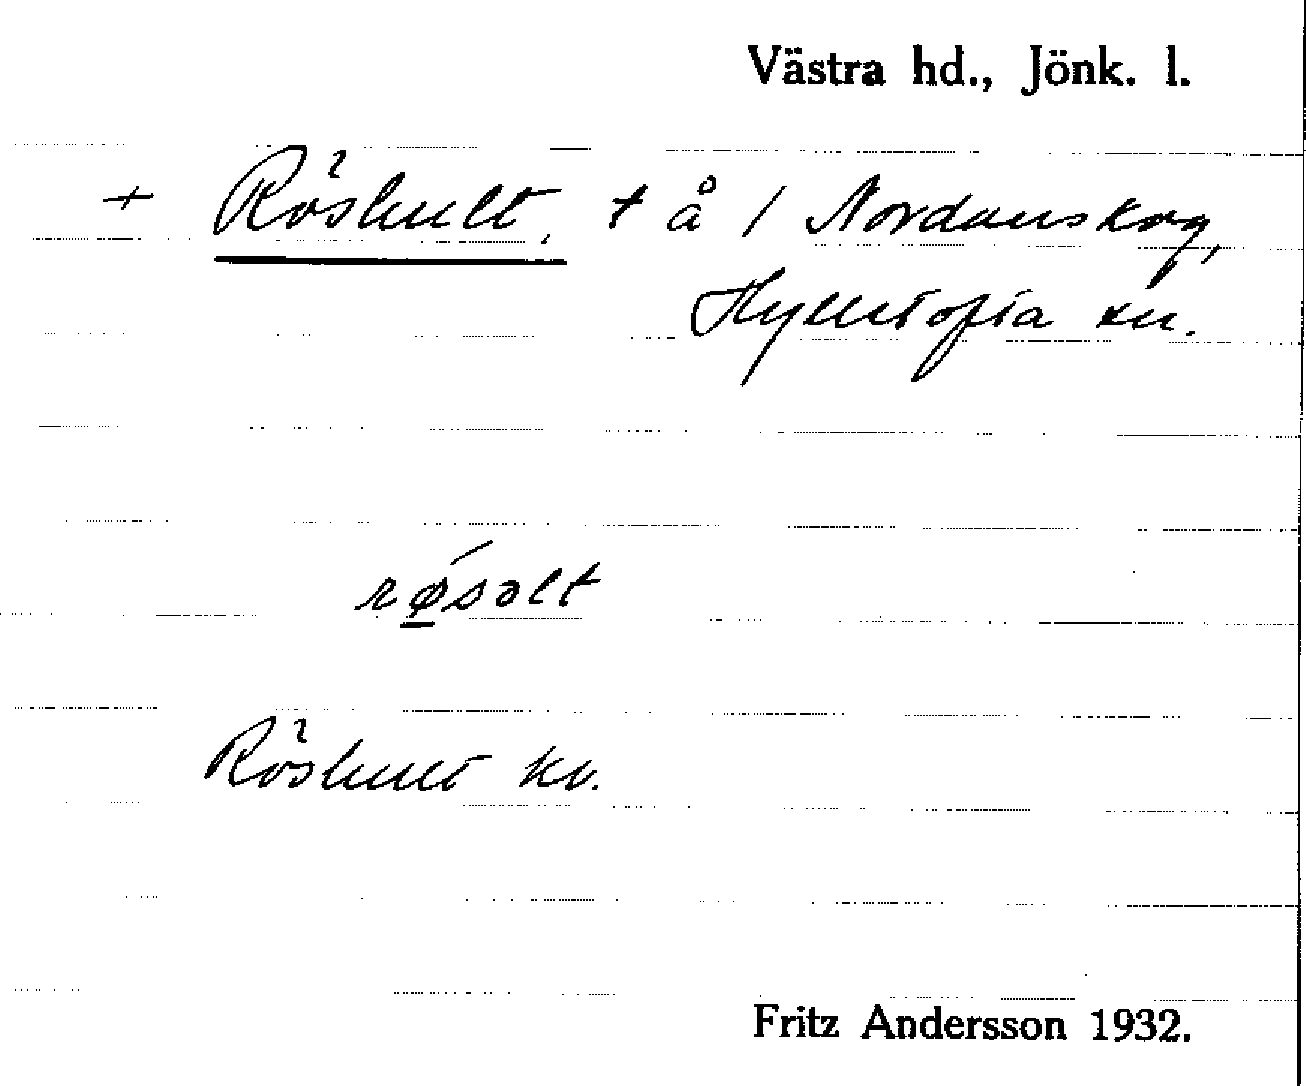 Västra hd., Jönk. l.
+ Röshult, + å / Nordanskog,
Hylletofta sn.
røsəlt
Röshult kv.
Fritz Andersson 1932.